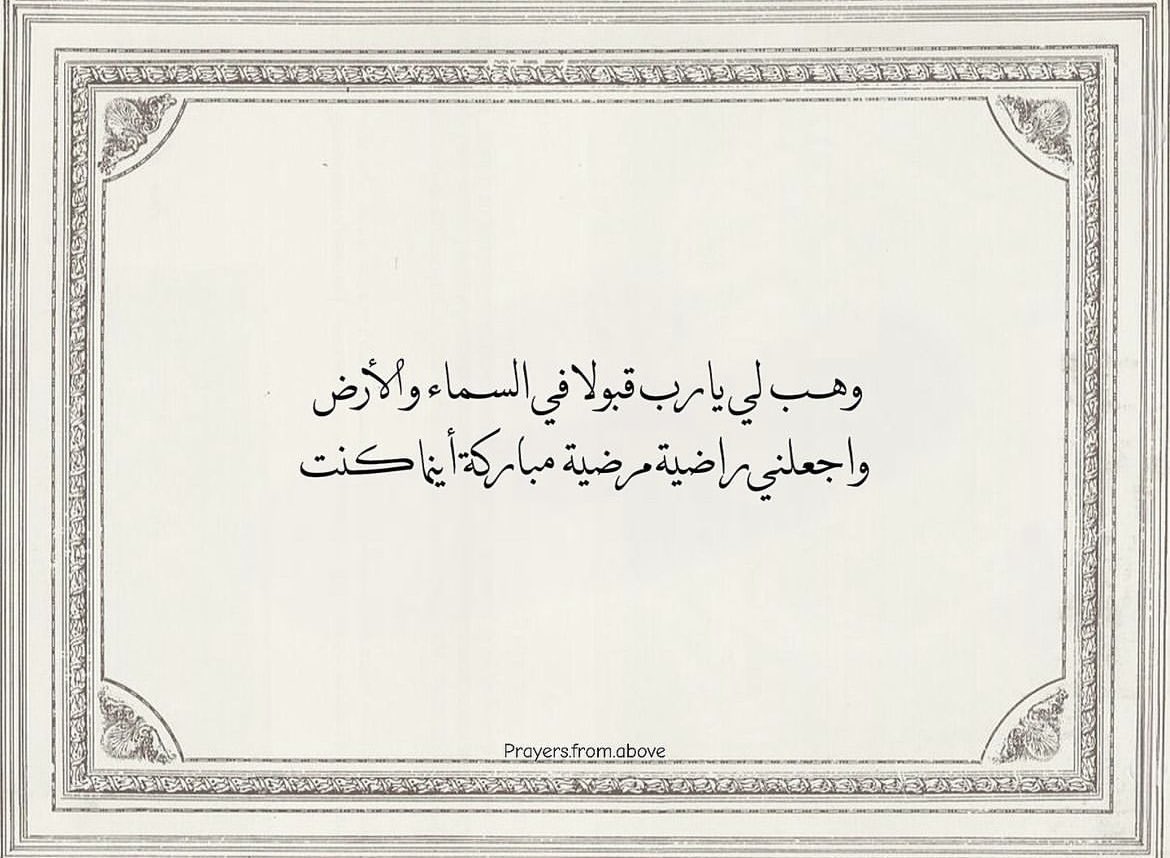 وهب لي يا رب قبولا في السماء والأرض
واجعلني راضية مرضية مباركة أينما كنت
Prayers.from.above